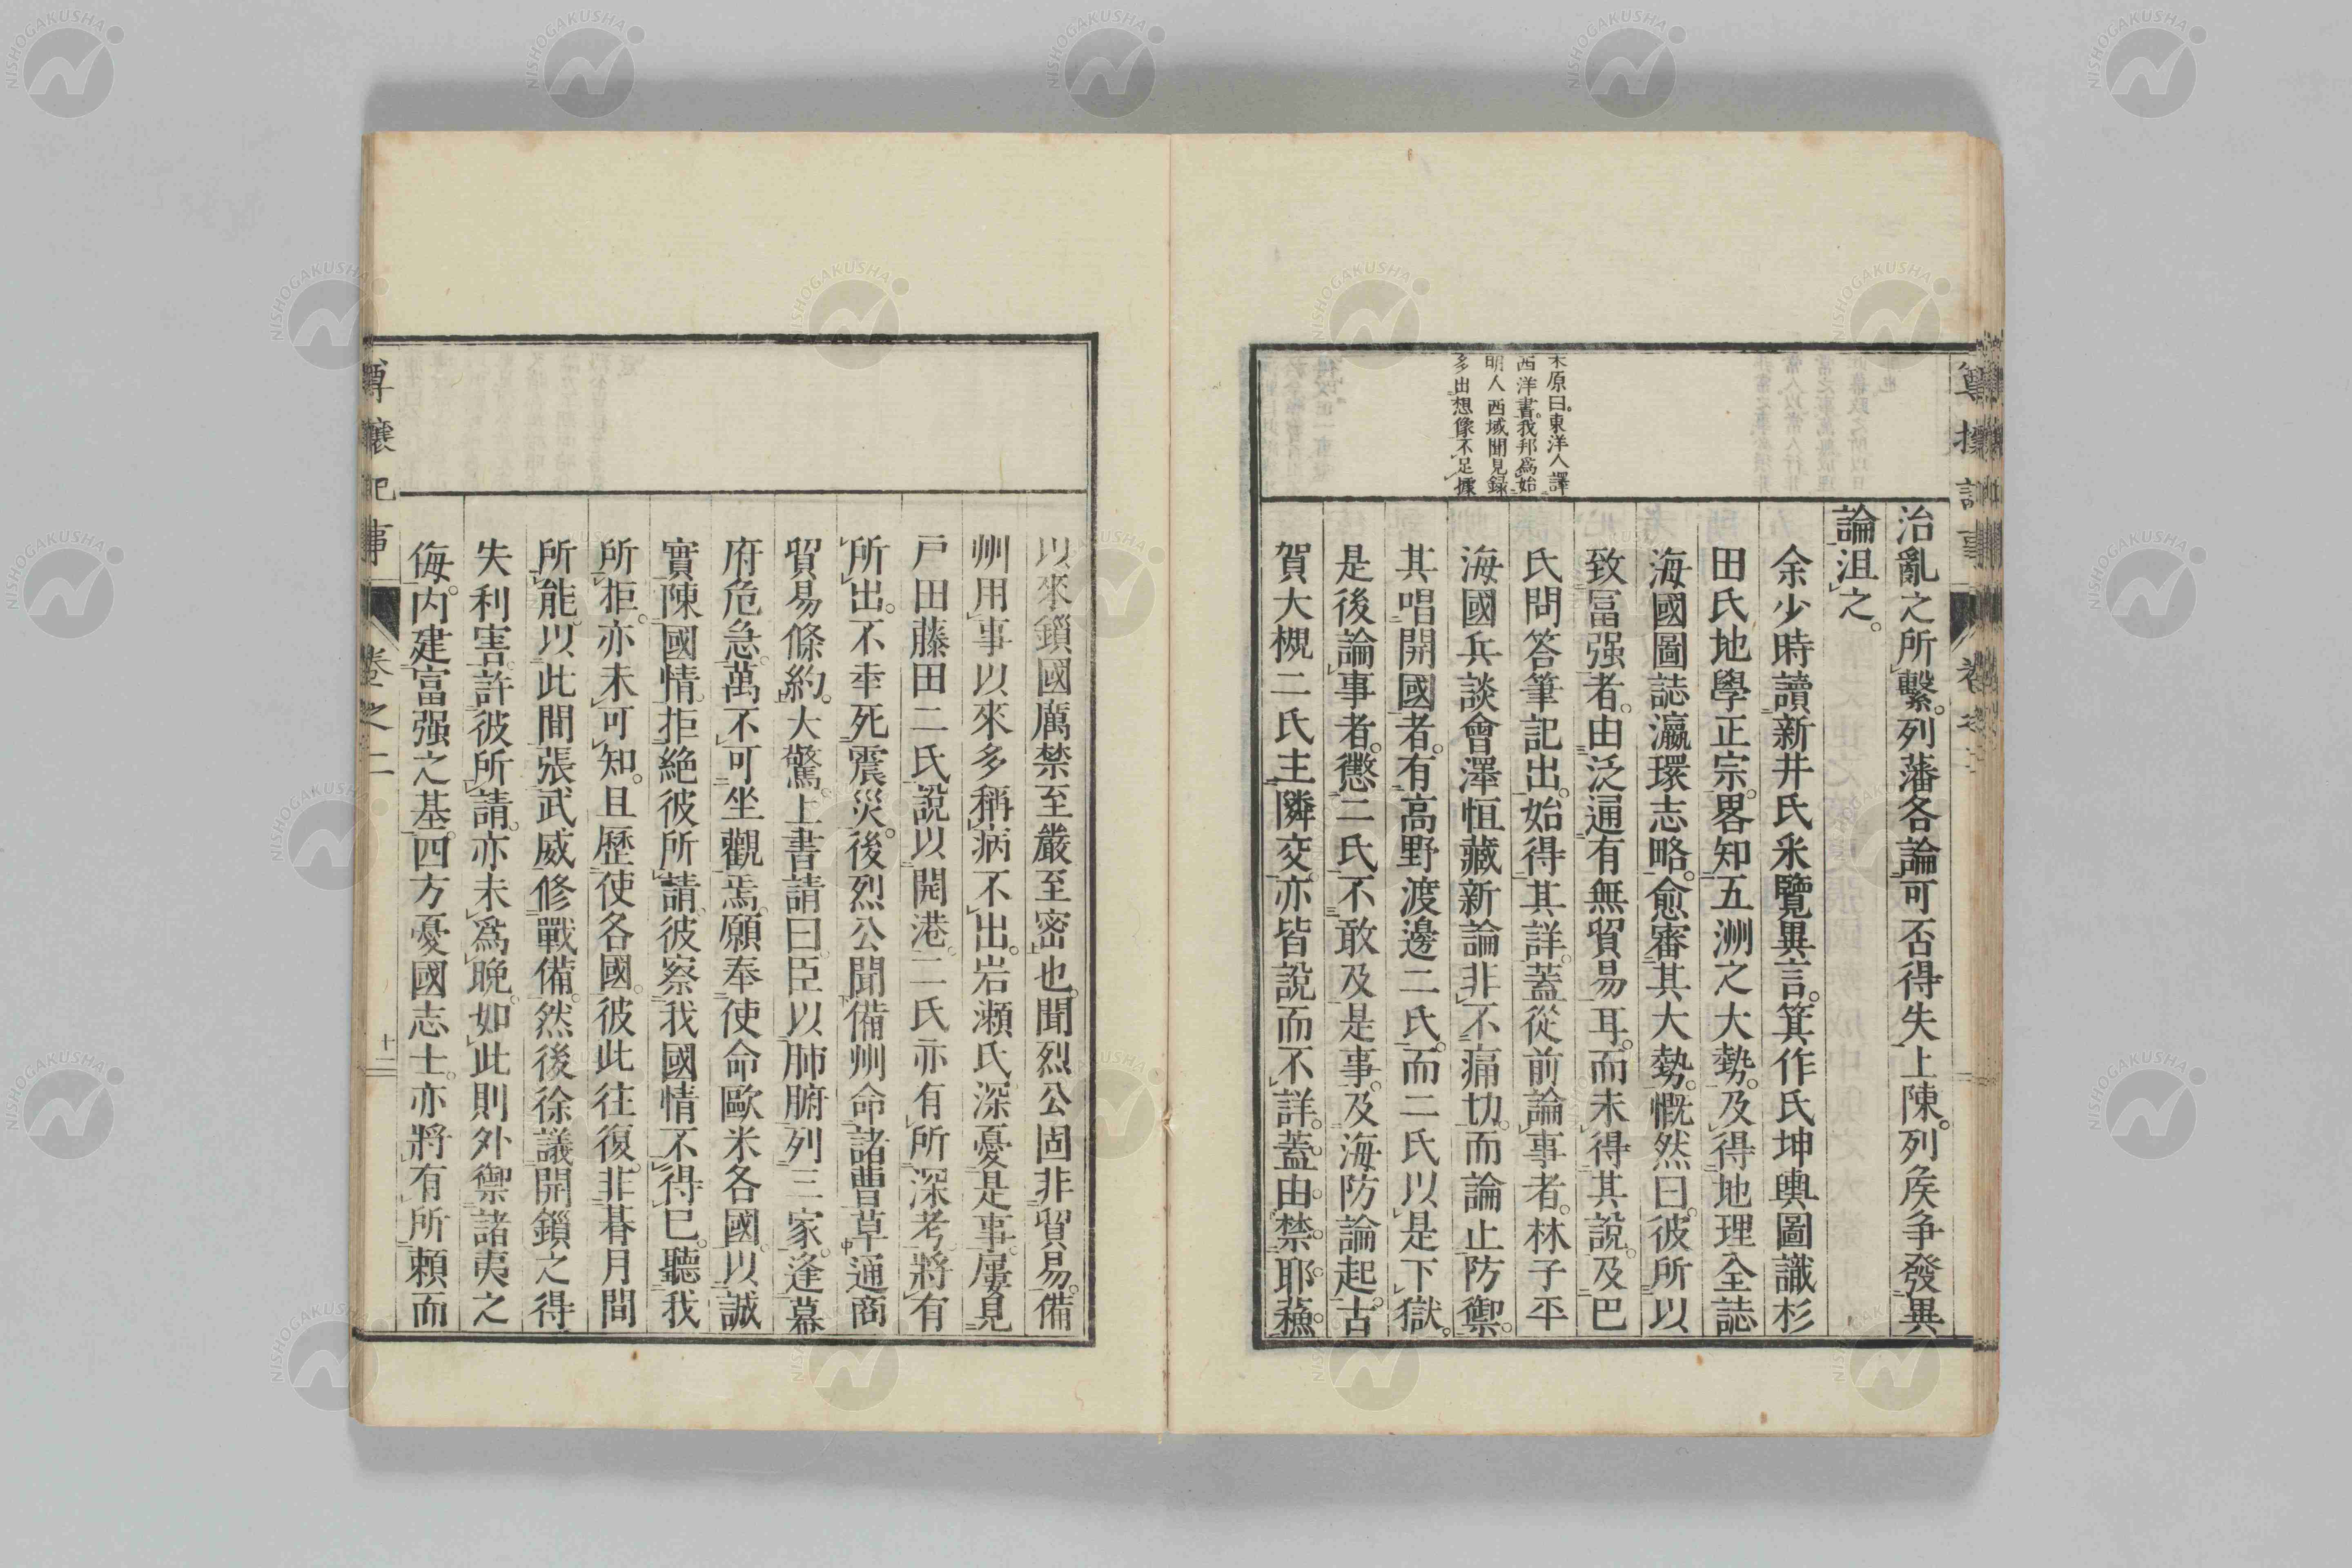 尊攘記事
卷之二
木原曰。東洋人譯
西洋書。我邦爲始
明人西域聞見録
多出想像不足據
治亂之所繫。列藩各論可否得失上陳。列矦争發異
論沮之。
余少時讀新井氏釆覽異言。箕作氏坤輿圖識杉
田氏地學正宗。畧知五洲之大勢。及得地理全誌
海國圖誌瀛環志略。愈審其大勢。慨然曰。彼所以
致冨强者。由泛通有無貿易耳。而未得其説。及巴
氏問答筆記出。始得其詳。蓋從前論事者。林子平
海國兵談會澤恒藏新論非不痛切。而論止防禦。
其唱開國者。有高野渡邊二氏。而二氏以是下獄。
是後論事者。懲二氏不敢及是事。及海防論起。古
賀大槻二氏主隣交亦皆説而不詳。蓋由禁耶蘇
以來鎖國厲禁至嚴至密也。聞烈公固非貿易。備
州用事以來多稱病不出。岩瀬氏深憂是事。屢見
戸田藤田二氏説以開港。二氏亦有所深考。將有
所出。不幸死震災。後烈公聞備州命諸曹草通商
貿易條約。大驚。上書請曰。臣以肺腑列三家。逢幕
府危急。萬不可坐觀焉。願奉使命歐米各國。以誠
實陳國情。拒絶彼所請。彼察我國情不得已。聽我
所拒。亦未可知。且歷使各國。彼此往復。非暮月間
所能。以此間張武威修戰備。然後徐議開鎖之得
失利害。許彼所請。亦未爲晩。如此則外禦諸夷之
侮。内建富强之基。四方憂國志士。亦將有所賴而
尊攘記事
卷之二
十二
NISHOGAKUSHA